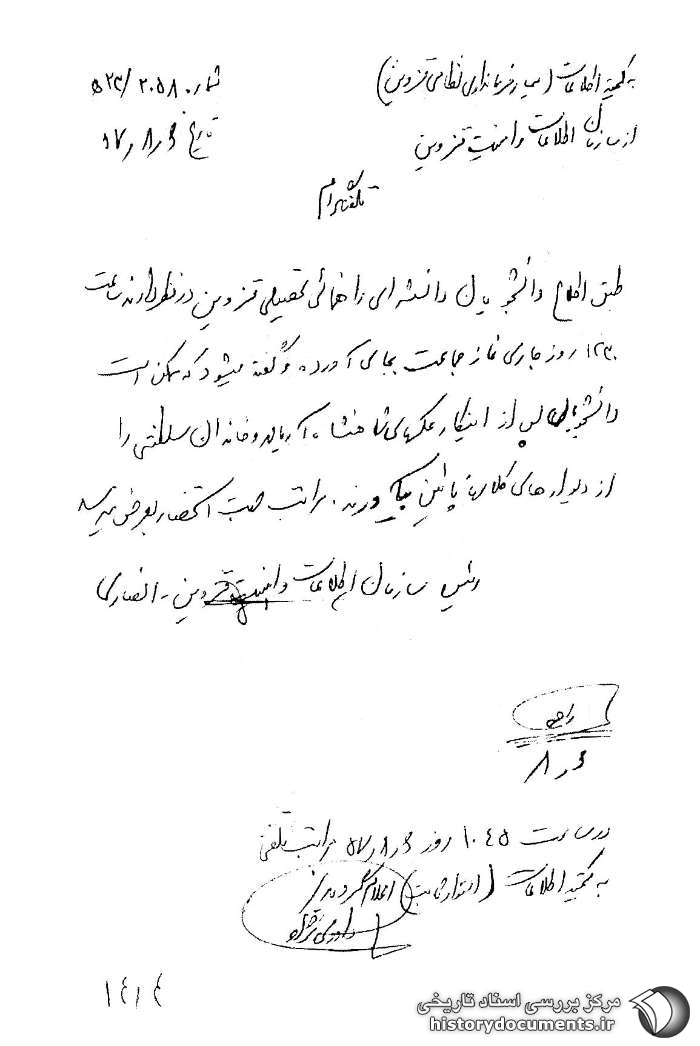 به کمیته اطلاعات (سپاد فرمانداری نظامی قزوین) شماره ۲۰۵۸ / ۵۲۳
از سازمان اطلاعات و امنیت قزوین تاریخ ۶ ر ۸ ر ۵۷
تلفنگرام
طبق اطلاع دانشجویان دانشسرای راهنمائی تحصیلی قزوین در نظر دارند ساعت
۱۲۳۰ روز جاری نماز جماعت بجای آورده و گفته میشود که ممکن است
دانشجویان پس از اینکار عکسهای شاهنشاه آریامهر و خاندان سلطنتی را
از دیوارهای کلاسها پائین بیاورند. مراتب جهت استحضار بعرض میرسد
رئیس سازمان اطلاعات و امنیت قزوین - انصاری
۶ ر ۸
در ساعت ۱۰۴۵ روز ۶ ر ۸ ر ۵۷ مراتب تلفنی
به کمیته اطلاعات اعلام گردید
۱۴۰۴
مرکز بررسی اسناد تاریخی
historydocuments.ir